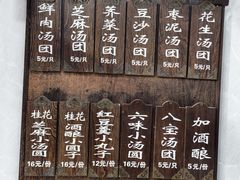 鲜肉汤团
5元/只
芝麻汤团
5元/只
荠菜汤团
5元/只
豆沙汤团
5元/只
枣泥汤团
5元/只
花生汤团
5元/只
桂花芝麻小汤圆
16元/份
桂花酒酿小圆子
16元/份
红豆羹小丸子
12元/份
六味小汤团
16元/份
八宝汤团
16元/份
加酒酿
5元/份